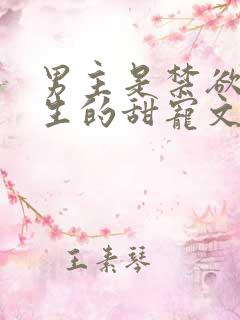 男主是禁欲
生的甜宠文
王素琴